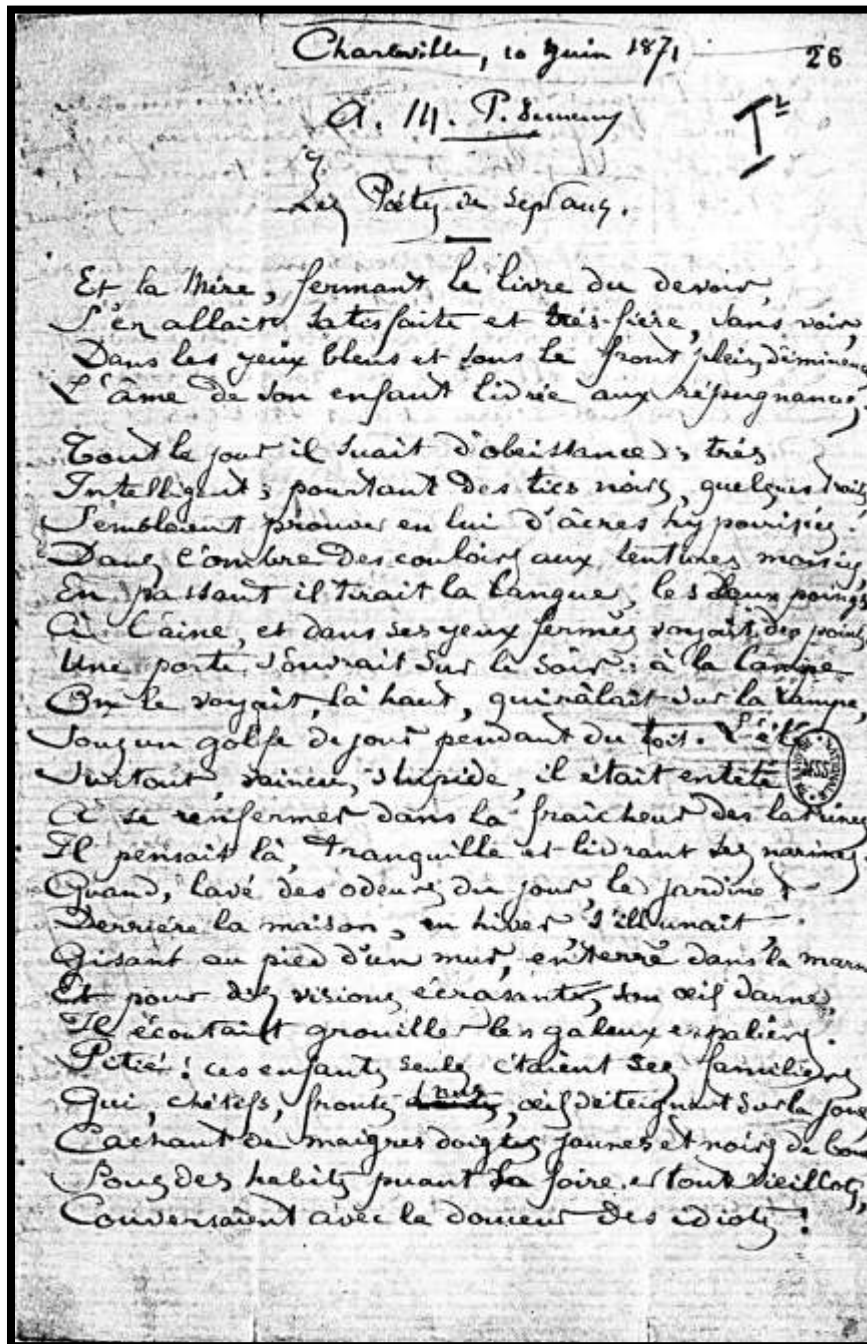 Charleville, 10 Juin 1871
26
A. M. P. Demeny
I
Les Poètes de sept ans.
Et la Mère, fermant le livre du devoir,
S'en allait, satisfaite et très-fière, sans voir,
Dans les yeux bleus et sous le front plein d'éminenc
L'âme de son enfant livrée aux répugnances.
Tout le jour il suait d'obéissance ; très
Intelligent ; pourtant des tics noirs, quelques traits
Semblaient prouver en lui d'âcres hypocrisies.
Dans l'ombre des couloirs aux tentures moisies,
En passant il tirait la langue, les deux poings
A l'aine, et dans ses yeux fermés voyait des points.
Une porte s'ouvrait sur le soir : à la lampe
On le voyait, là haut, qui râlait sur la rampe,
Sous un golfe de jour pendant du toit. L'été
Surtout, vaincu, stupide, il était entêté
A se renfermer dans la fraîcheur des latrines
Il pensait là, tranquille et livrant ses narines.
Quand, lavé des odeurs du jour, le jardinet
Derrière la maison, en hiver s'illunait
Gisant au pied d'un mur, enterré dans la marn
Et pour des visions écrasant son œil darne,
Il écoutait grouiller les galeux espaliers.
Pitié ! ces enfants seuls étaient ses familiers
Qui, chétifs, fronts nus, œil déteignant sur la joue
Cachant de maigres doigts jaunes et noirs de boue
Sous des habits puant la foire et tout vieillots,
Conversaient avec la douceur des idiots !